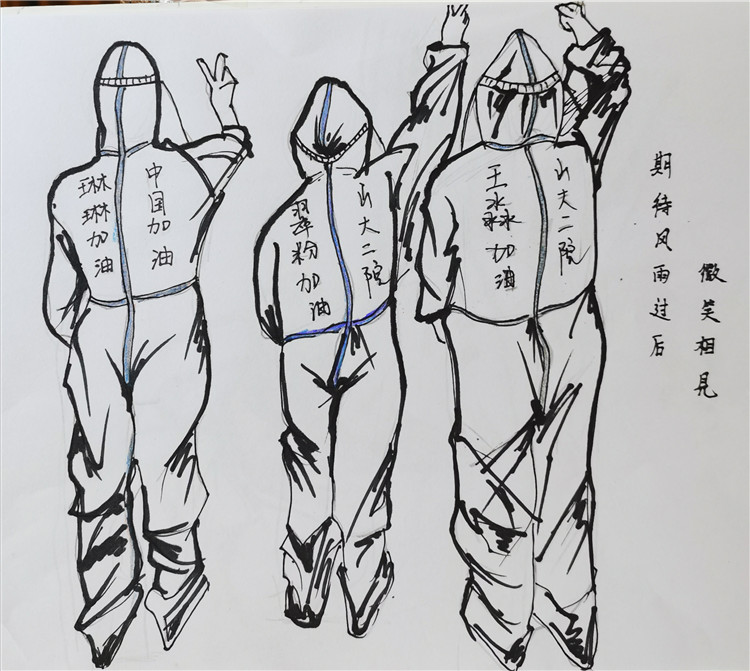 中国加油
琳琳加油
山大二院
翠粉加油
山大二院
王淼加油
期待风雨过后
微笑相见